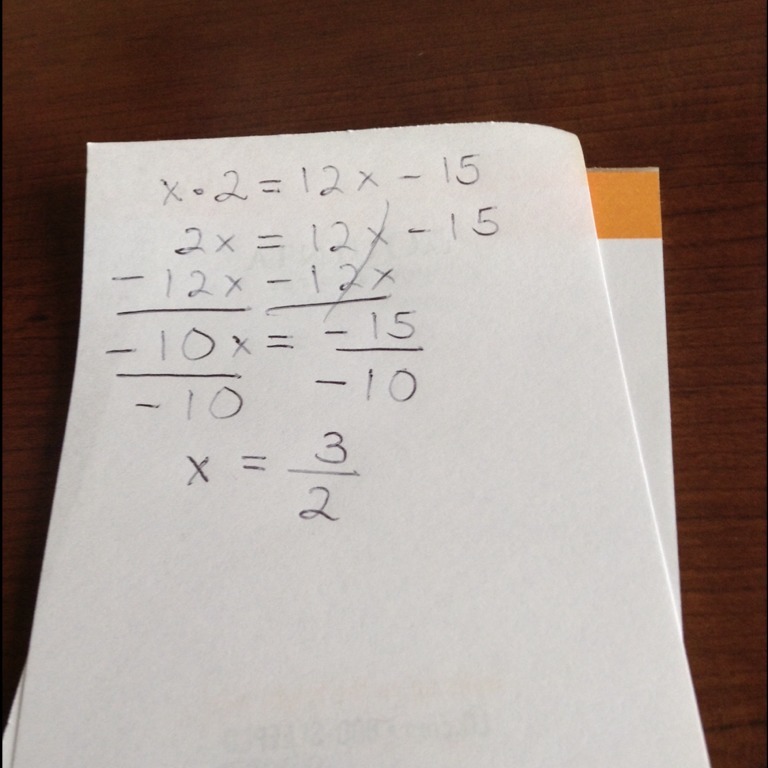 x • 2 = 12x - 15
2x = 12x - 15
- 12x - 12x
- 10x = - 15
- 10 - 10
x = 3/2